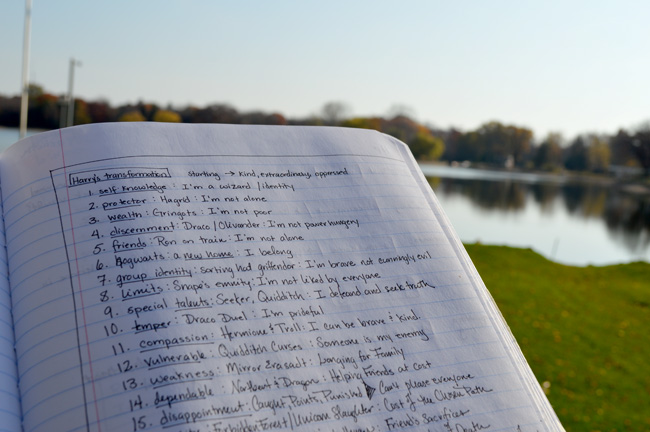 Harry's transformation   starting → kind, extraordinary, oppressed
1. self. knowledge : I'm a wizard / identity
2. protector : Hagrid : I'm not alone
3. wealth : Gringots : I'm not poor
4. discernment : Draco / Olivander : I'm not power hungry
5. friends : Ron on train : I'm not alone
6. Hogwarts : a new home : I belong
7. group identity : sorting hat, griffendor : I'm brave not cunningly evil
8. limits : Snape's enmity : I'm not liked by everyone
9. special talents : Seeker, Quidditch : I defend and seek truth
10. temper : Draco Duel : I'm prideful
11. compassion : Hermione & Troll : I can be brave & kind.
12. vulnerable : Quidditch Curses : Someone is my enemy
13. weakness : Mirror Erasad : Longing for Family
14. dependable : Norbert & Dragon : Helping Friends at cost
15. disappointment : Caught, Points, Punished : Can't please everyone
Forbidden Forest / Unicorn Slaughter : Cost of the Chosen Path
Friend's Sacrifice
of Death